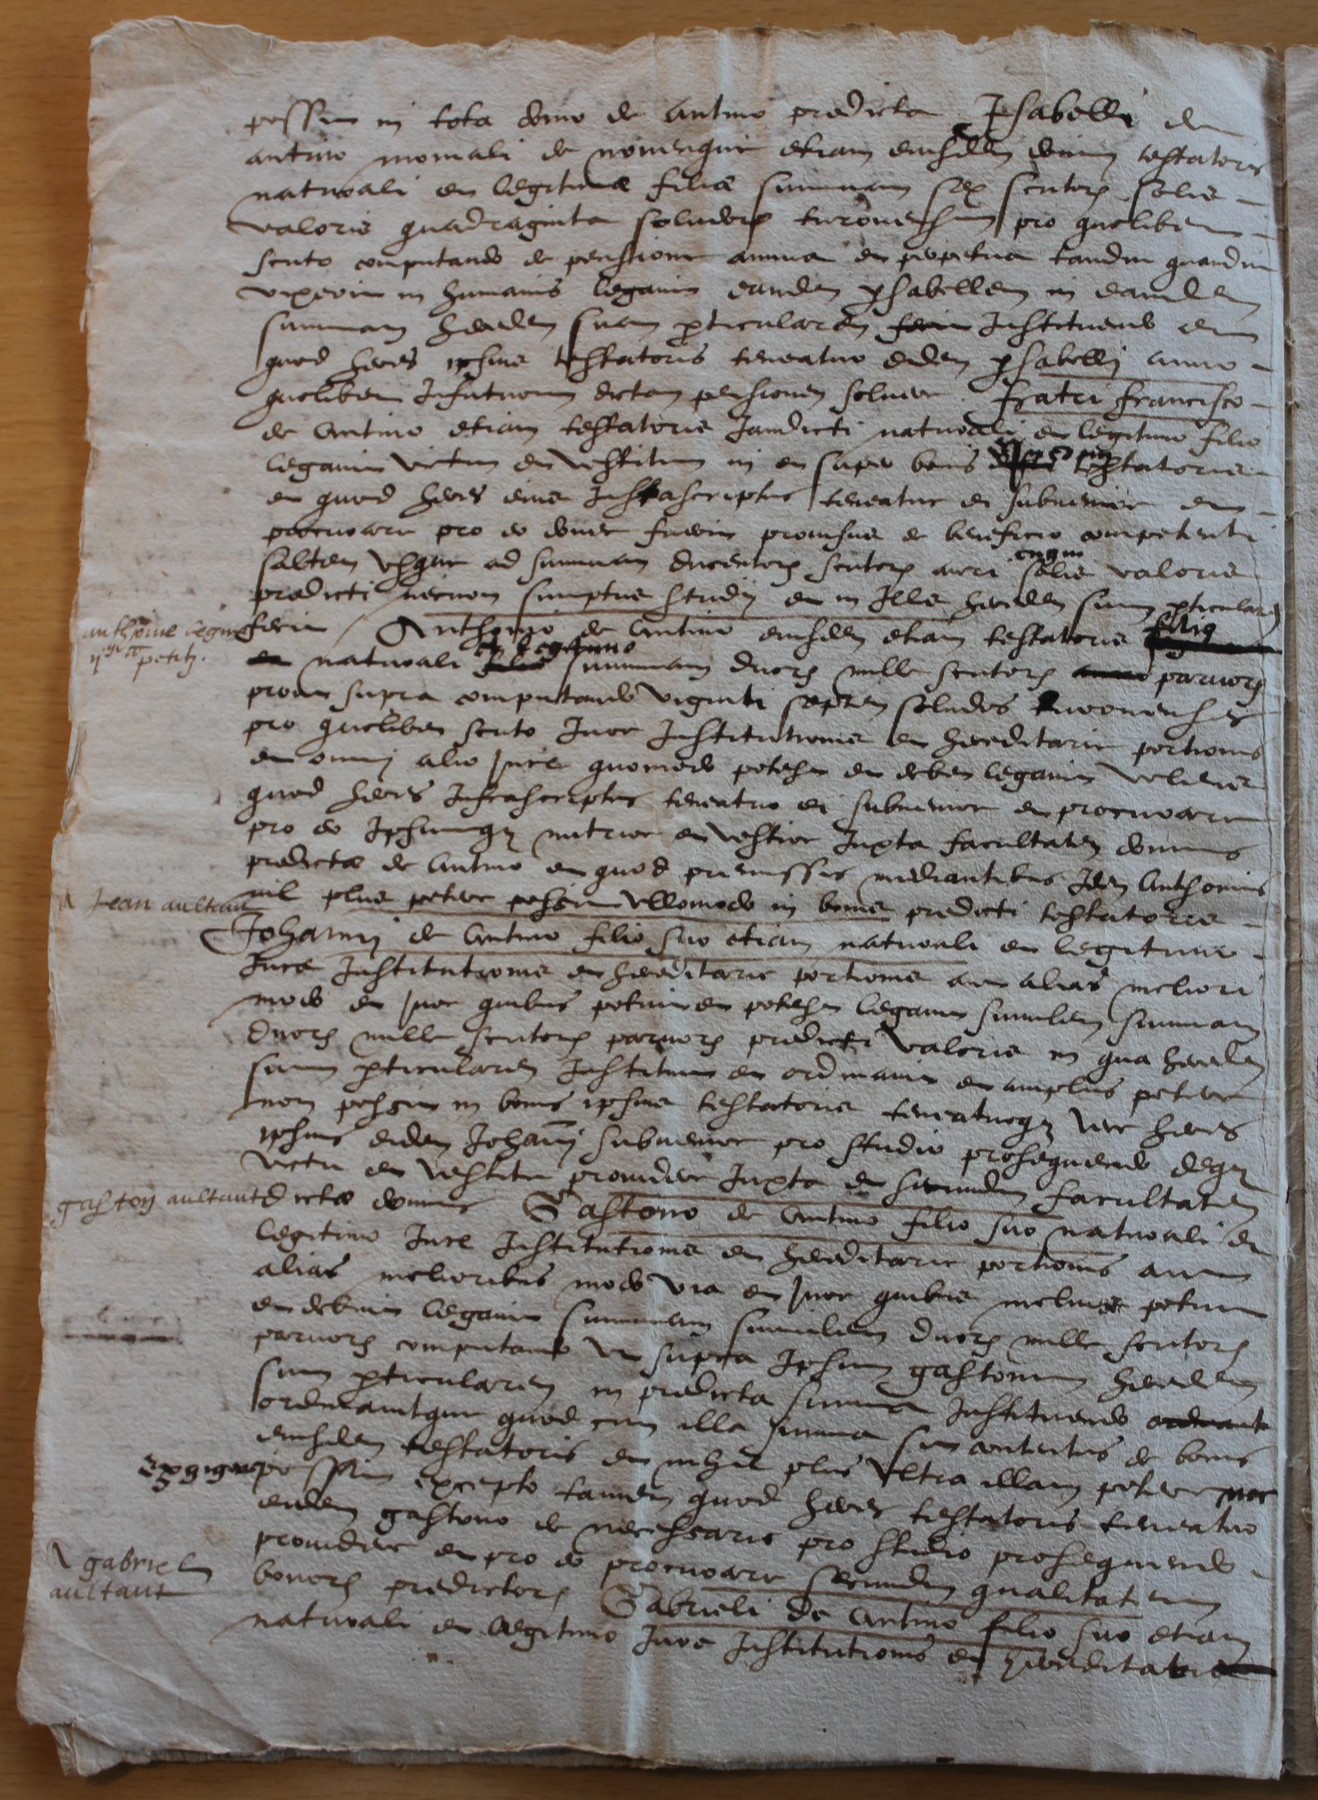 possit in tota domo de Antino predicta Isabelli de
Antino moniali de etiam eiusdem domini testatoris
naturali et legitime filie summam sex scutorum solis
valoris quadraginta solidorum turonensium pro quolibet
scuto computando de pensione annua et perpetua tandiu quandiu
vixerit in humanis legavit eandem ysabellem in eamdem
summam heredem suam particularem instituendo et
quod heres ipsius testatoris teneatur eidem ysabelli anno
quolibet dictam pensionem solvere fratri francisco
de Antino etiam testatoris jamdicti naturali et legitimo filio
legavit victum et vestitum in et super bonis testatoris
et quod heres eius infrascriptus teneatur ei subvenire et
procurare pro eo donec fuerit provisus de beneficio competenti
saltem usque ad summam ducentorum scutorum auri cugni solis valoris
predicti necnon sumptus studii et in illis heredem suum particularem
fecit Anthonio de Antino eiusdem etiam testatoris filio
anthoine
petit.
naturali et legitimo summam duorum mille scutorum parvorum
prout supra computando viginti septem solidos turonenses
pro quolibet scuto jure institutionis et hereditarie portionis
et omni alio jure quomodo potest et debet legavit volens
quod heres infrascriptus teneatur ei subvenire et procurare
pro eo ipsumque nutrire et vestire juxta facultatem domus
predicte de Antino et quod premissis mediantibus idem Anthonius
nil plus petere possit ullomodo in bonis predicti testatoris
Jean aultant
Johanni de Antino filio suo etiam naturali et legitimo
jure institutionis et hereditarie portionis aut alias meliori
modo et jure quibus potuit et potest legavit similem summam
duorum mille scutorum parvorum predicti valoris in qua heredem
suum particularem instituit et ordinavit et amplius petere
non possit in bonis ipsius testatoris teneaturque heres
ipsius eidem Johanni subvenire pro studio prosequendo deque
victu et vestitu providere juxta et secundum facultatem
gaston aultant
dicte domus Gastono de Antino filio suo naturali et
legitimo jure institutionis et hereditarie portionis aut
alias melioribus modo via et jure quibus melius potuit
et debuit legavit summam similem duorum mille scutorum
parvorum computando ut supra ipsum gastonum heredem
suum particularem in predicta summa instituendo
ordinavitque quod cum illa summa sit contentus de bonis
eiusdem testatoris et nihil plus ultra illam petere
possit excepto tamen quod heres testatoris teneatur
eidem gastono de necessariis pro studio prosequendo
providere et pro eo procurare secundum qualitatem
gabriel
aultant
bonorum predictorum Gabrieli de Antino filio suo etiam
naturali et legitimo jure institutionis et hereditarie